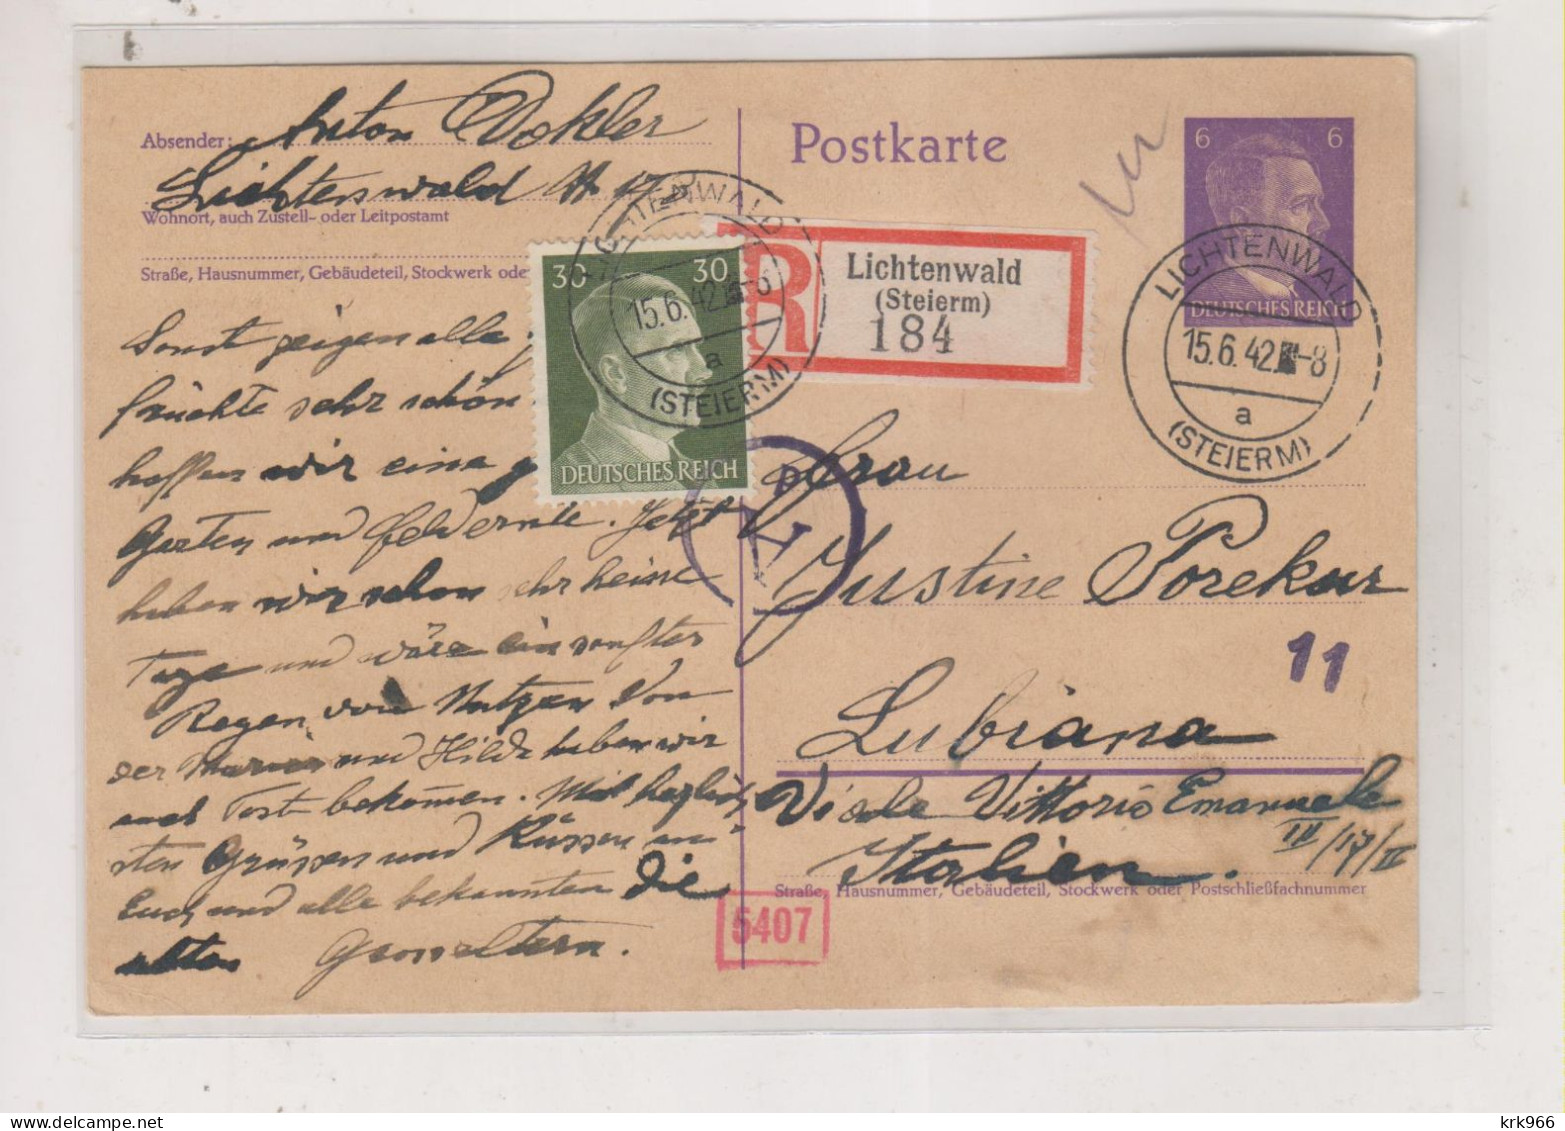 Absender: Anton
Lichtenwald
Wohnort, auch Zustell- oder Leitpostamt
Straße, Hausnummer, Gebäudeteil, Stockwerk oder
Postkarte
6 6
DEUTSCHES REICH
LICHTENWALD
15.6.42.-8
a
(STEIERM)
30 30
DEUTSCHES REICH
LICHTENWALD
15.6.42.-8
a
(STEIERM)
R
Lichtenwald
(Steierm)
184
Sonst zeigen alle
früchte sehr schön
hoffen wir eine g
Garten und Feldernte. Jetzt
haben wir schon sehr heisse
Tage und wäre ein sanfter
Regen von Nutzen Von
der und Hilda haben wir
auch Post bekommen. Mit herzlich
sten Grüssen und Küssen an
Euch und alle bekannten die
alten Grosseltern.
Frau
Justine Porekar
11
Lubiana
Viale Vittorio Emanuele
III/17/II
Italien.
Straße, Hausnummer, Gebäudeteil, Stockwerk oder Postschließfachnummer
5407
krk966